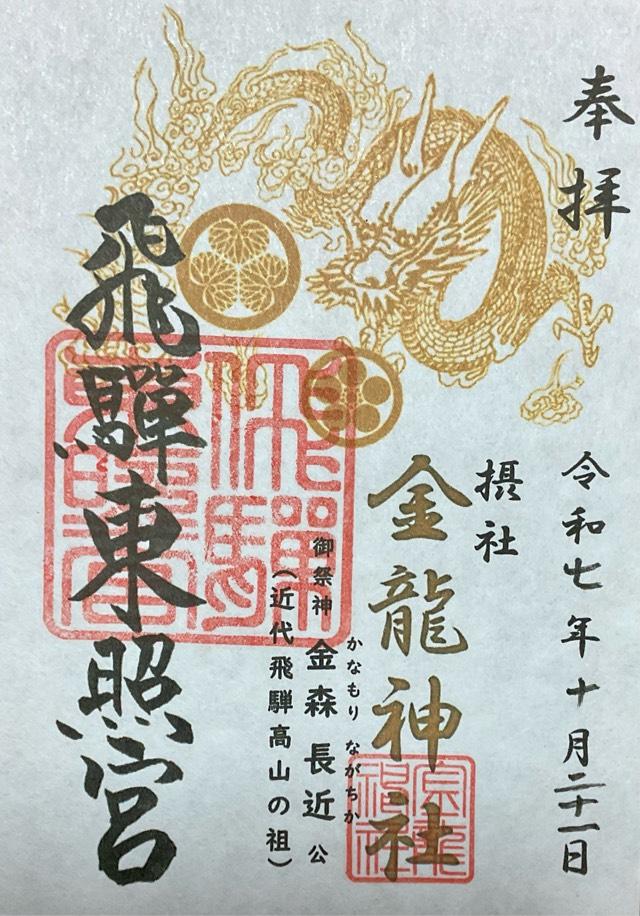 奉拝
令和七年十月二十一日
摂社
金龍神社
かなもり ながちか
御祭神 金森 長近 公
(近代飛騨高山の祖)
飛驒東照宮